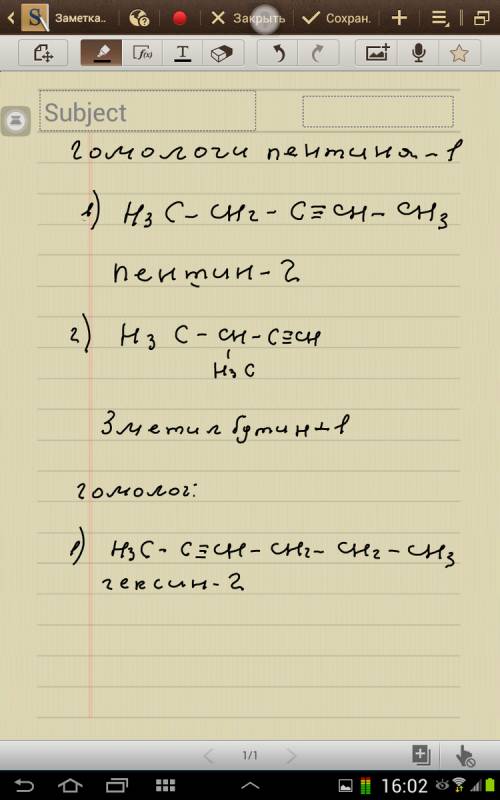 Заметка..
S
Закрыть
Сохран.
f(x)
T
Subject
Гомологи пентина-1
1) H3C-CH2-C≡CH-CH3
пентин-2
2) H3C-CH-C≡CH
H3C
3метилбутин-1
гомолог:
1) H3C-C≡CH-CH2-CH2-CH3
гексин-2
1/1
16:02